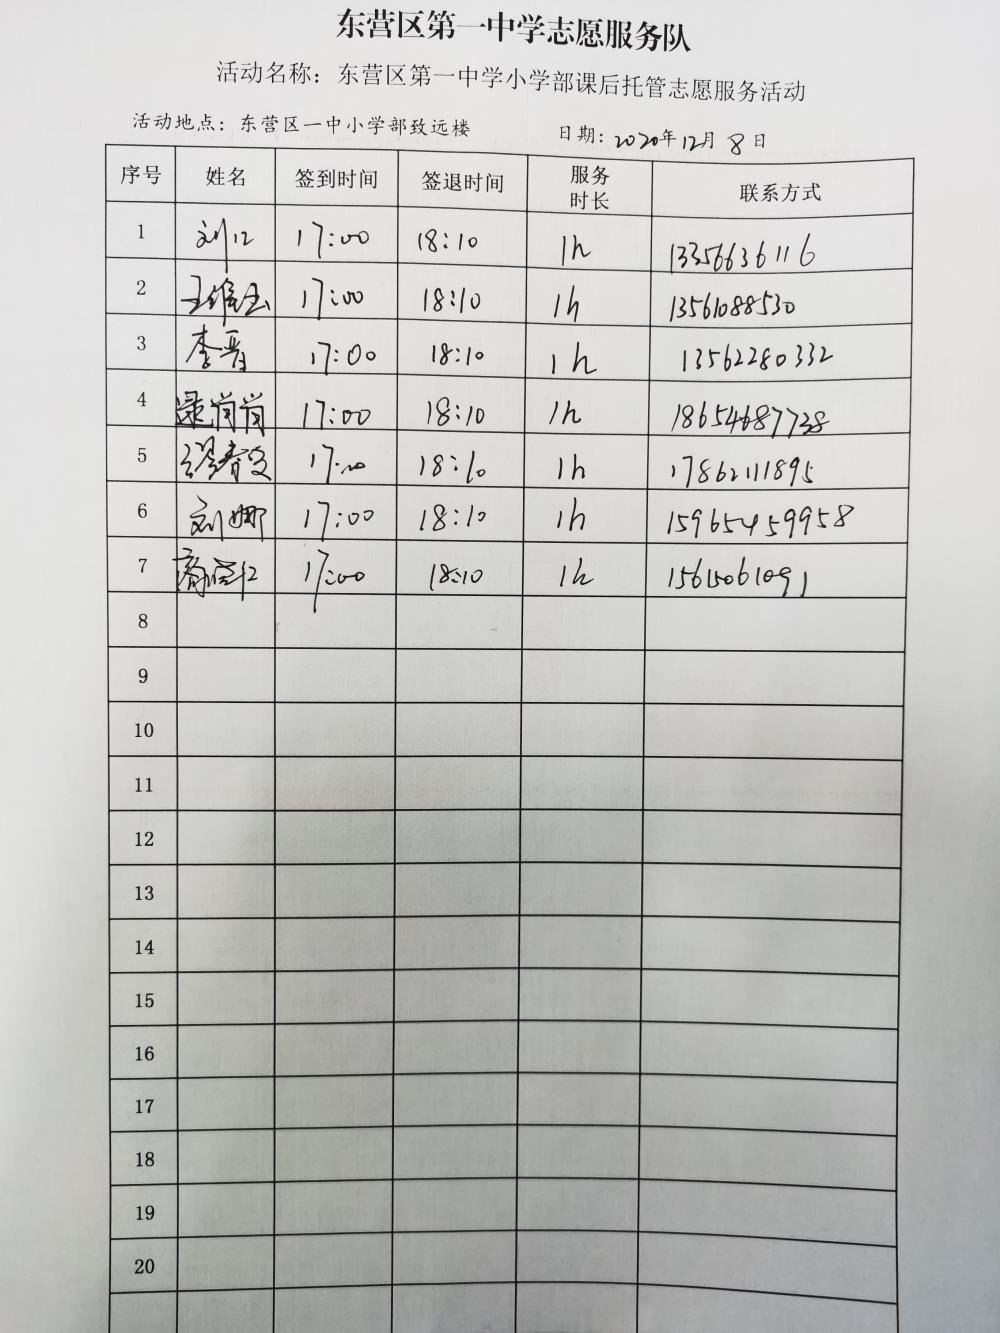 东营区第一中学志愿服务队
活动名称：东营区第一中学小学部课后托管志愿服务活动
活动地点：东营区一中小学部致远楼 日期：2020年12月8日
序号 姓名 签到时间 签退时间 服务时长 联系方式
1 刘江 17:00 18:10 1h 13356636116
2 17:00 18:10 1h 13561088530
3 李晋 17:00 18:10 1h 13562280332
4 逯岗岗 17:00 18:10 1h 18654687738
5 17:00 18:10 1h 17862111895
6 刘娜 17:00 18:10 1h 15965459958
7 17:00 18:10 1h 15615061091
8
9
10
11
12
13
14
15
16
17
18
19
20